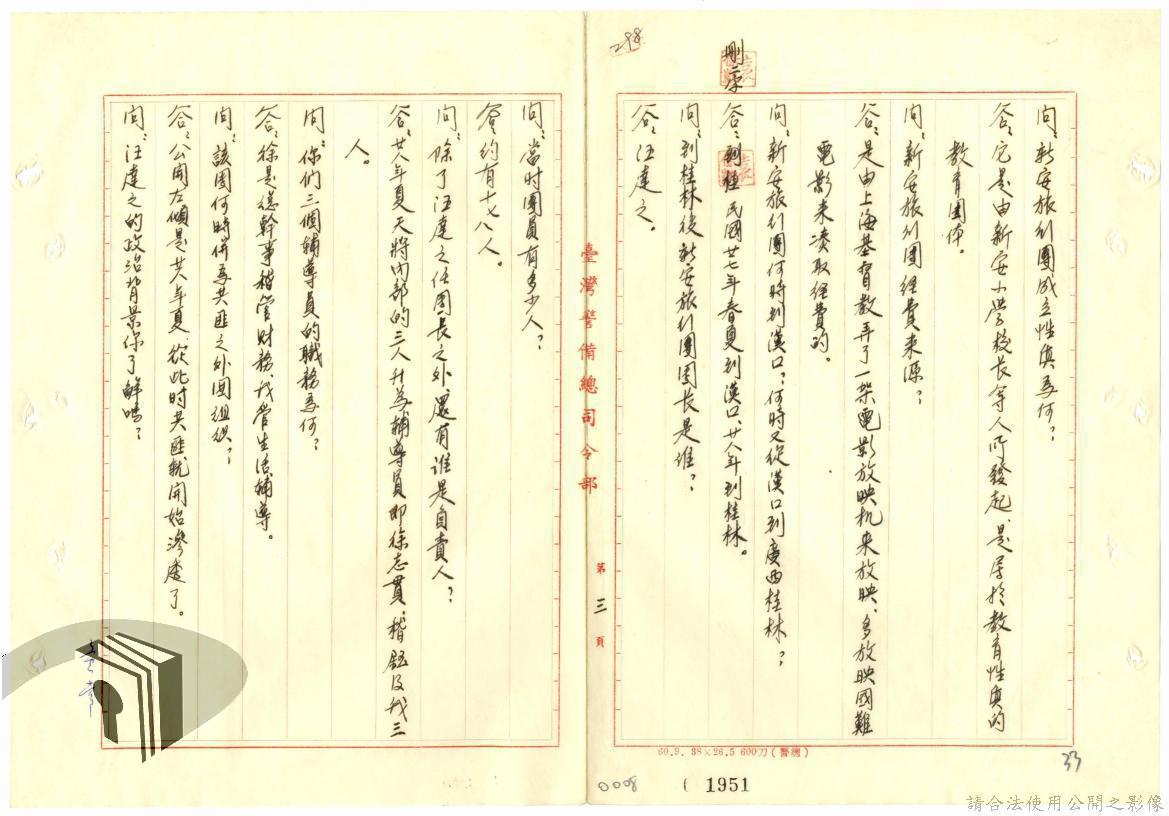 298
刪二字
問：新安旅行團成立性質為何？
答：它是由新安小學校長等人所發起、是屬於教育性質的
教育團体。
問：新安旅行團經費來源？
答：是由上海基督教弄了一架電影放映机來放映、多放映國難
電影來湊取經費的。
問：新安旅行團何時到漢口？何時又從漢口到廣西桂林？
答：到桂民國廿七年春夏到漢口、廿八年到桂林。
問：到桂林後新安旅行團團長是誰？
答：汪達之。
臺灣警備總司令部
第三頁
問：當时團員有多少人？
答：約有十七八人。
問：除了汪達之任團長之外、還有誰是負責人？
答：廿八年夏天將內部的三人升為輔導員即徐志貫、稽鈺及我三
人。
問：你們三個輔導員的職務為何？
答：徐是總幹事稽管財務、我管生活輔導。
問：該團何時併為共匪之外圍組織？
答：公開左傾是廿八年夏、從此时共匪就開始滲透了。
問：汪達之的政治背景你了解嗎？
60.9. 38×26.5 600刀(警總)
33
0008
( 1951
請合法使用公開之影像